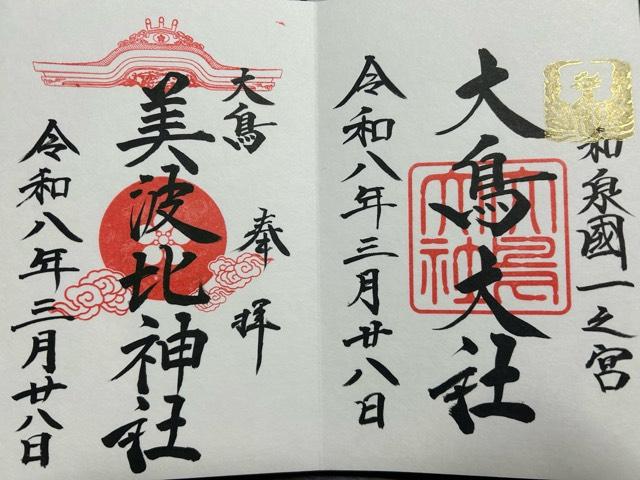 和泉國一之宮
大鳥大社
大鳥大社
令和八年三月廿八日
大鳥
奉拝
美波比神社
令和八年三月廿八日